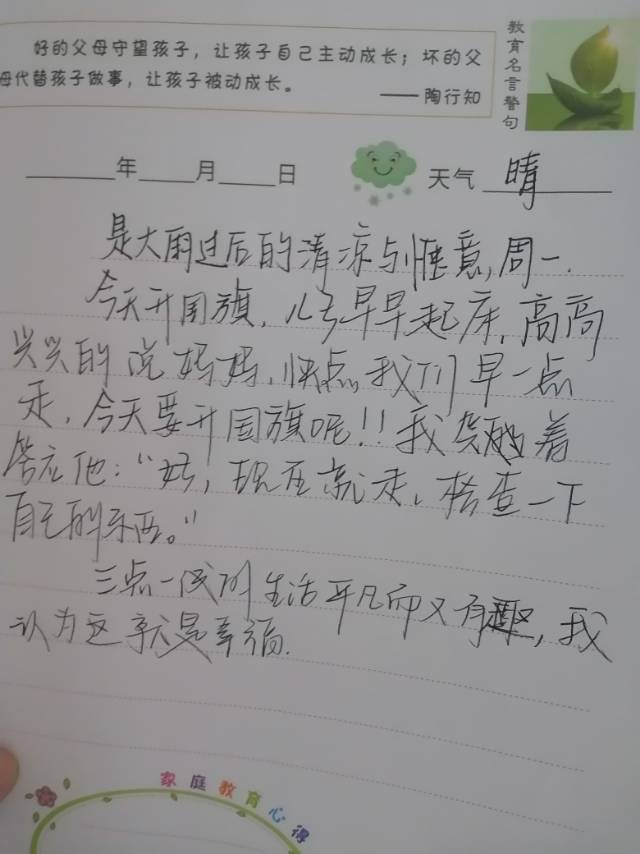 好的父母守望孩子，让孩子自己主动成长；坏的父
母代替孩子做事，让孩子被动成长。
——陶行知
教育名言警句
____年____月____日
天气 晴
是大雨过后的清凉与惬意，周一.
今天升国旗，儿子早早起床，高高
兴兴的说妈妈，快点，我们早一点
走，今天要升国旗呢！！我笑着
答应他：“好，现在就走，检查一下
自己的东西。”
三点一线的生活平凡而又有趣，我
认为这就是幸福.
家庭教育心得